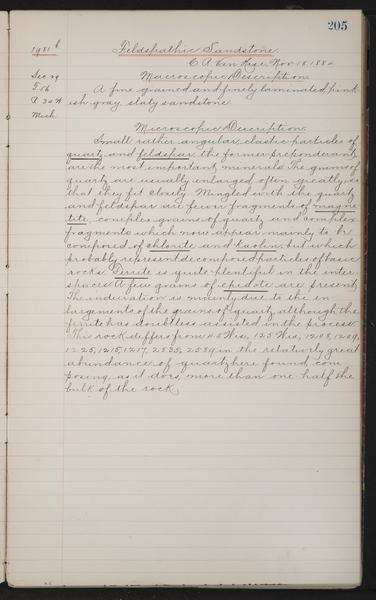 205
1981 b. Feldspathic Sandstone.
C. A. Van Hise, Nov. 18, 188
Sec 29 Macroscopic Description.
T. 56 A fine grained and finely laminated, pink
R. 32 W ish gray, slaty sandstone
Mich.
Microscopic Description.
Small, rather angular, clastic particles of
quartz and feldspar, the former preponderant,
are the most important minerals. The grains of
quartz are usually enlarged, often greatly, so
that they fit closely. Mingled with the quartz
and feldspar are fewer fragments of magne
tite, complex grains of quartz and complex
fragments which now appear mainly to be
composed of chlorite and kaolin, but which
probably represent decomposed particles of basic
rocks. Ferrite is quite plentiful in the inter
spaces. A few grains of epidote are present.
The induration is mainly due to the en
largements of the grains of quartz, although the
ferrite has doubtless assisted in the process.
This rock differs from Wis., 125 Wis., 1208, 1209,
1225, 1215, 1217, 2535, 2589 in the relatively great
abundance of quartz here found, com
posing, as it does, more than one half the
bulk of the rock.